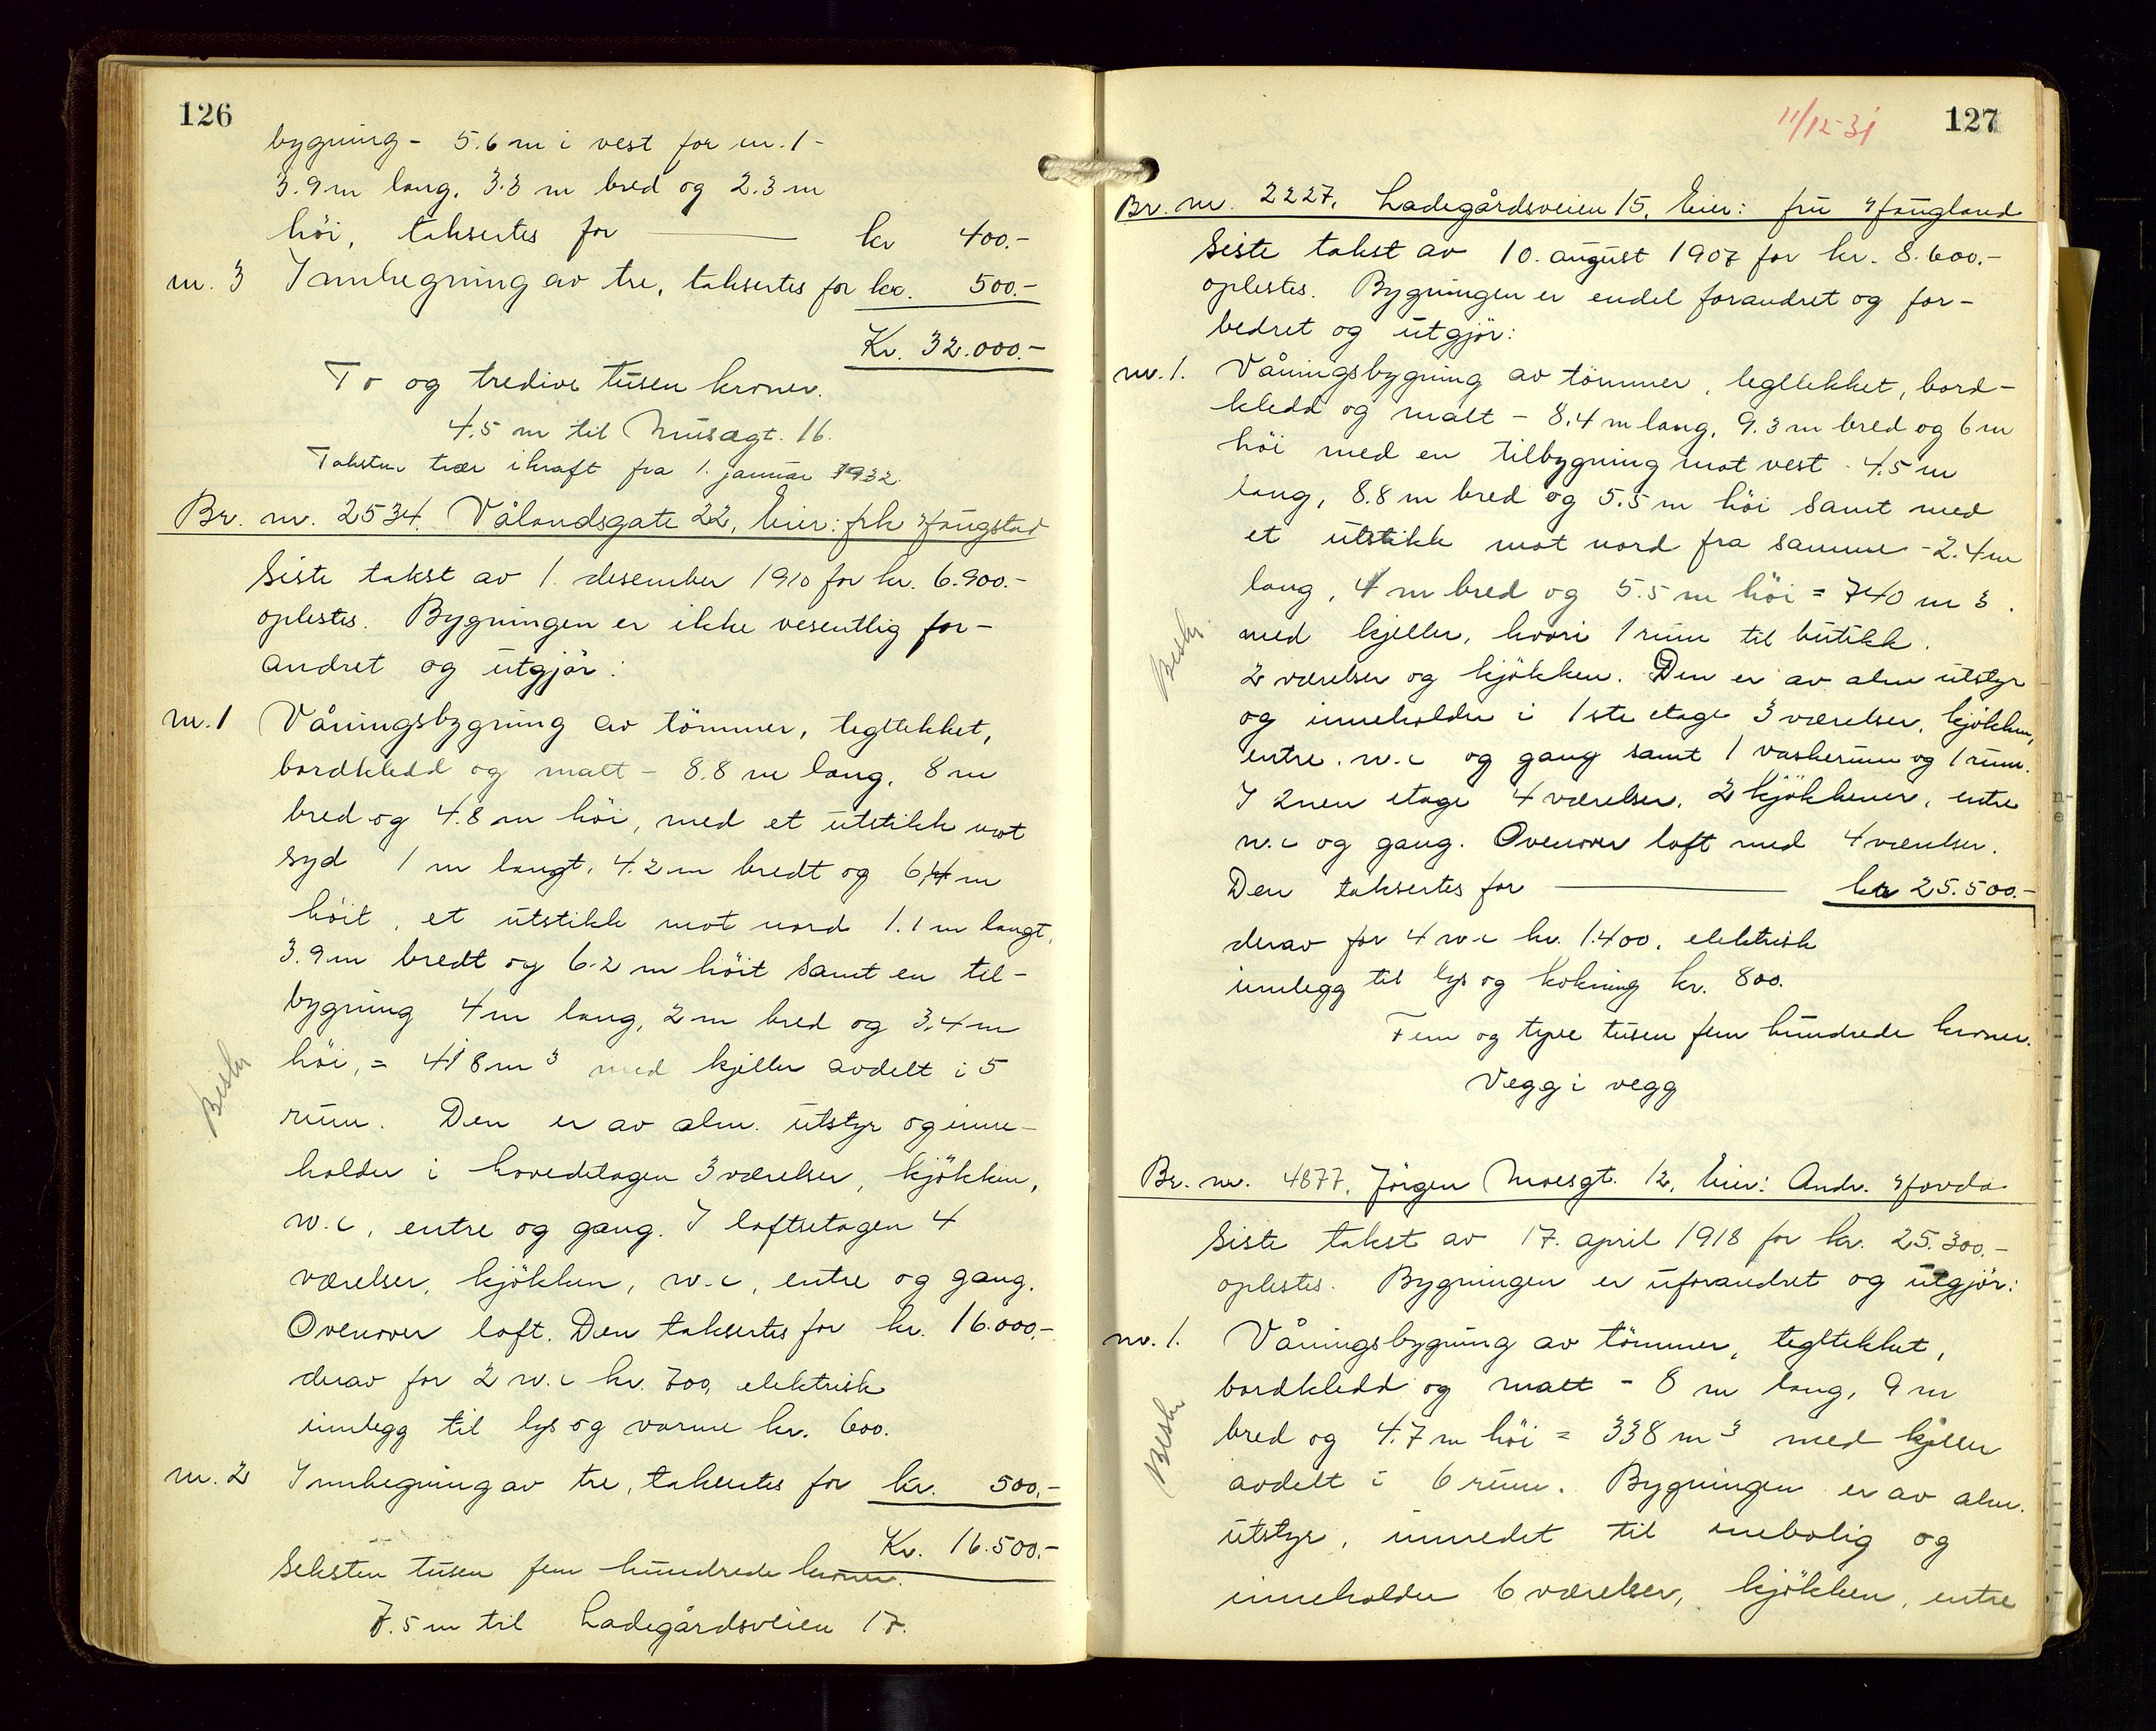 126
bygning - 5.6 m i vest for nr. 1 -
3.9 m lang, 3.3 m bred og 2.3 m
höi, taksertes for kr 400.-
nr. 3 Innhegning av tre, taksertes for kr. 500.-
Kr. 32.000.-
To og tredive tusen kroner.
4.5 m til Musegt. 16.
Taksten trær ikraft fra 1. januar 1932.
Br. nr. 2534. Vålandsgate 22, Eier: frk Haugstad
Siste takst av 1. desember 1910 for kr. 6.900.-
oplestes. Bygningen er ikke vesentlig for-
andret og utgjör:
nr. 1 Våningsbygning av tömmer, tegltekket,
bordkledd og malt - 8.8 m lang, 8 m
bred og 4.8 m höi, med et utstikk mot
syd 1 m langt, 4.2 m bredt og 6,4 m
höit, et utstikk mot nord 1.1 m langt,
3.9 m bredt og 6.2 m höit samt en til-
bygning 4 m lang, 2 m bred og 3,4 m
höi, = 418 m3 med kjeller avdelt i 5
Beskr
rum. Den er av alm. utstyr og inne-
holder i hovedetagen 3 værelser, kjökken,
w.c, entre og gang. I loftsetagen 4
værelser, kjökken, w.c, entre og gang.
Ovenover loft. Den taksertes for kr. 16.000,-
derav for 2 w.c kr. 700, elektrisk
innlegg til lys og varme kr. 600.
nr. 2 Innhegning av tre, taksertes for kr. 500,-
Kr. 16.500,-
Seksten tusen fem hundrede kroner.
7.5 m til Ladegårdsveien 17.
11/12-31 127
Br. nr. 2227. Ladegårdsveien 15, Eier: fru Haugland
Siste takst av 10. august 1907 for kr. 8.600.-
oplestes. Bygningen er endel forandret og for-
bedret og utgjör:
nr. 1. Våningsbygning av tömmer, tegltekket, bord-
kledd og malt - 8.4 m lang, 9.3 m bred og 6 m
höi med en tilbygning mot vest - 4.5 m
lang, 8.8 m bred og 5.5 m höi samt med
et utstikk mot nord fra samme - 2.4 m
lang, 4 m bred og 5.5 m höi = 740 m3.
Beskr.
med kjeller, hvori 1 rum til butikk.
2 værelser og kjökken. Den er av alm utstyr
og inneholder i 1ste etage 3 værelser, kjökken,
entre, w.c og gang samt 1 vaskerum og 1 rum.
I 2nen etage 4 værelser, 2 kjökkener, entre
w.c og gang. Ovenover loft med 4 værelser.
Den taksertes for kr 25.500.-
derav for 4 w.c kr. 1.400, elektrisk
innlegg til lys og kokning kr. 800.
Fem og tyve tusen fem hundrede kroner.
Vegg i vegg
Br. nr. 4877. Jörgen Moesgt. 12, Eier: Andr. Hovda
Siste takst av 17. april 1918 for kr. 25.300.-
oplestes. Bygningen er uforandret og utgjör:
nr. 1. Våningsbygning av tömmer, tegltekket,
bordkledd og malt - 8 m lang, 9 m
Beskr
bred og 4.7 m höi = 338 m3 med kjeller
avdelt i 6 rum. Bygningen er av alm.
utstyr, innredet til enebolig og
inneholder 6 værelser, kjökken, entre